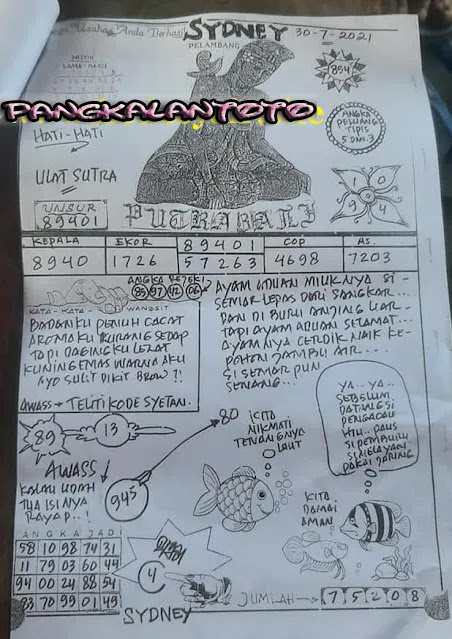 Semoga Usaha Anda Berhasil
SYDNEY
30-7-2021
PELAMBANG
894
MISTIK
LAMA BARU
PANGKALANTOTO
HATI-HATI
ANGKA
PELUANG
TIPIS
5 DAN 3
ULAT SUTRA
UNSUR
89401
PUTRA BALI
1 0
9 4
KEPALA EKOR 89401 COP AS.
8940 1726 57263 4698 7203
ANGKA REJEKI
85 97 42 06
KATA - KATA - WANGSIT
BADANKU PENUH CACAT
AROMAKU KURANG SEDAP
TAPI DAGINGKU LEZAT
KUNING EMAS WARNA AKU
AYO SULIT DIKIT BROW ?!
AWASS → TELITI KODE SYETAN.
AYAM ADUAN MILIKNYA SI-
SEMAR LEPAS DARI SANGKAR...
DAN DI BURU ANJING LIAR-
TAPI AYAM ADUAN SELAMAT...
AYAMNYA CERDIK NAIK KE-
POHON JAMBU AIR....
SI SEMAR PUN
SENANG...
89
13
80
KITA
NIKMATI
TENANGNYA
LAUT
YA.. YA..
SEBELUM
DATANG SI
PENGACAU
ITU.. PAUS
SI PEMBURU
SI NELAYAN
PAKAI JARING
AWASS
KALAU UDAH
TUA ISINYA
RAYAP..!
945
KITA
DAMAI
AMAN
ANGKA JADI
58 10 98 74 31
11 79 03 60 44
94 00 24 88 54
83 70 99 01 49
4
JUMLAH → 7 5 2 0 8
SYDNEY